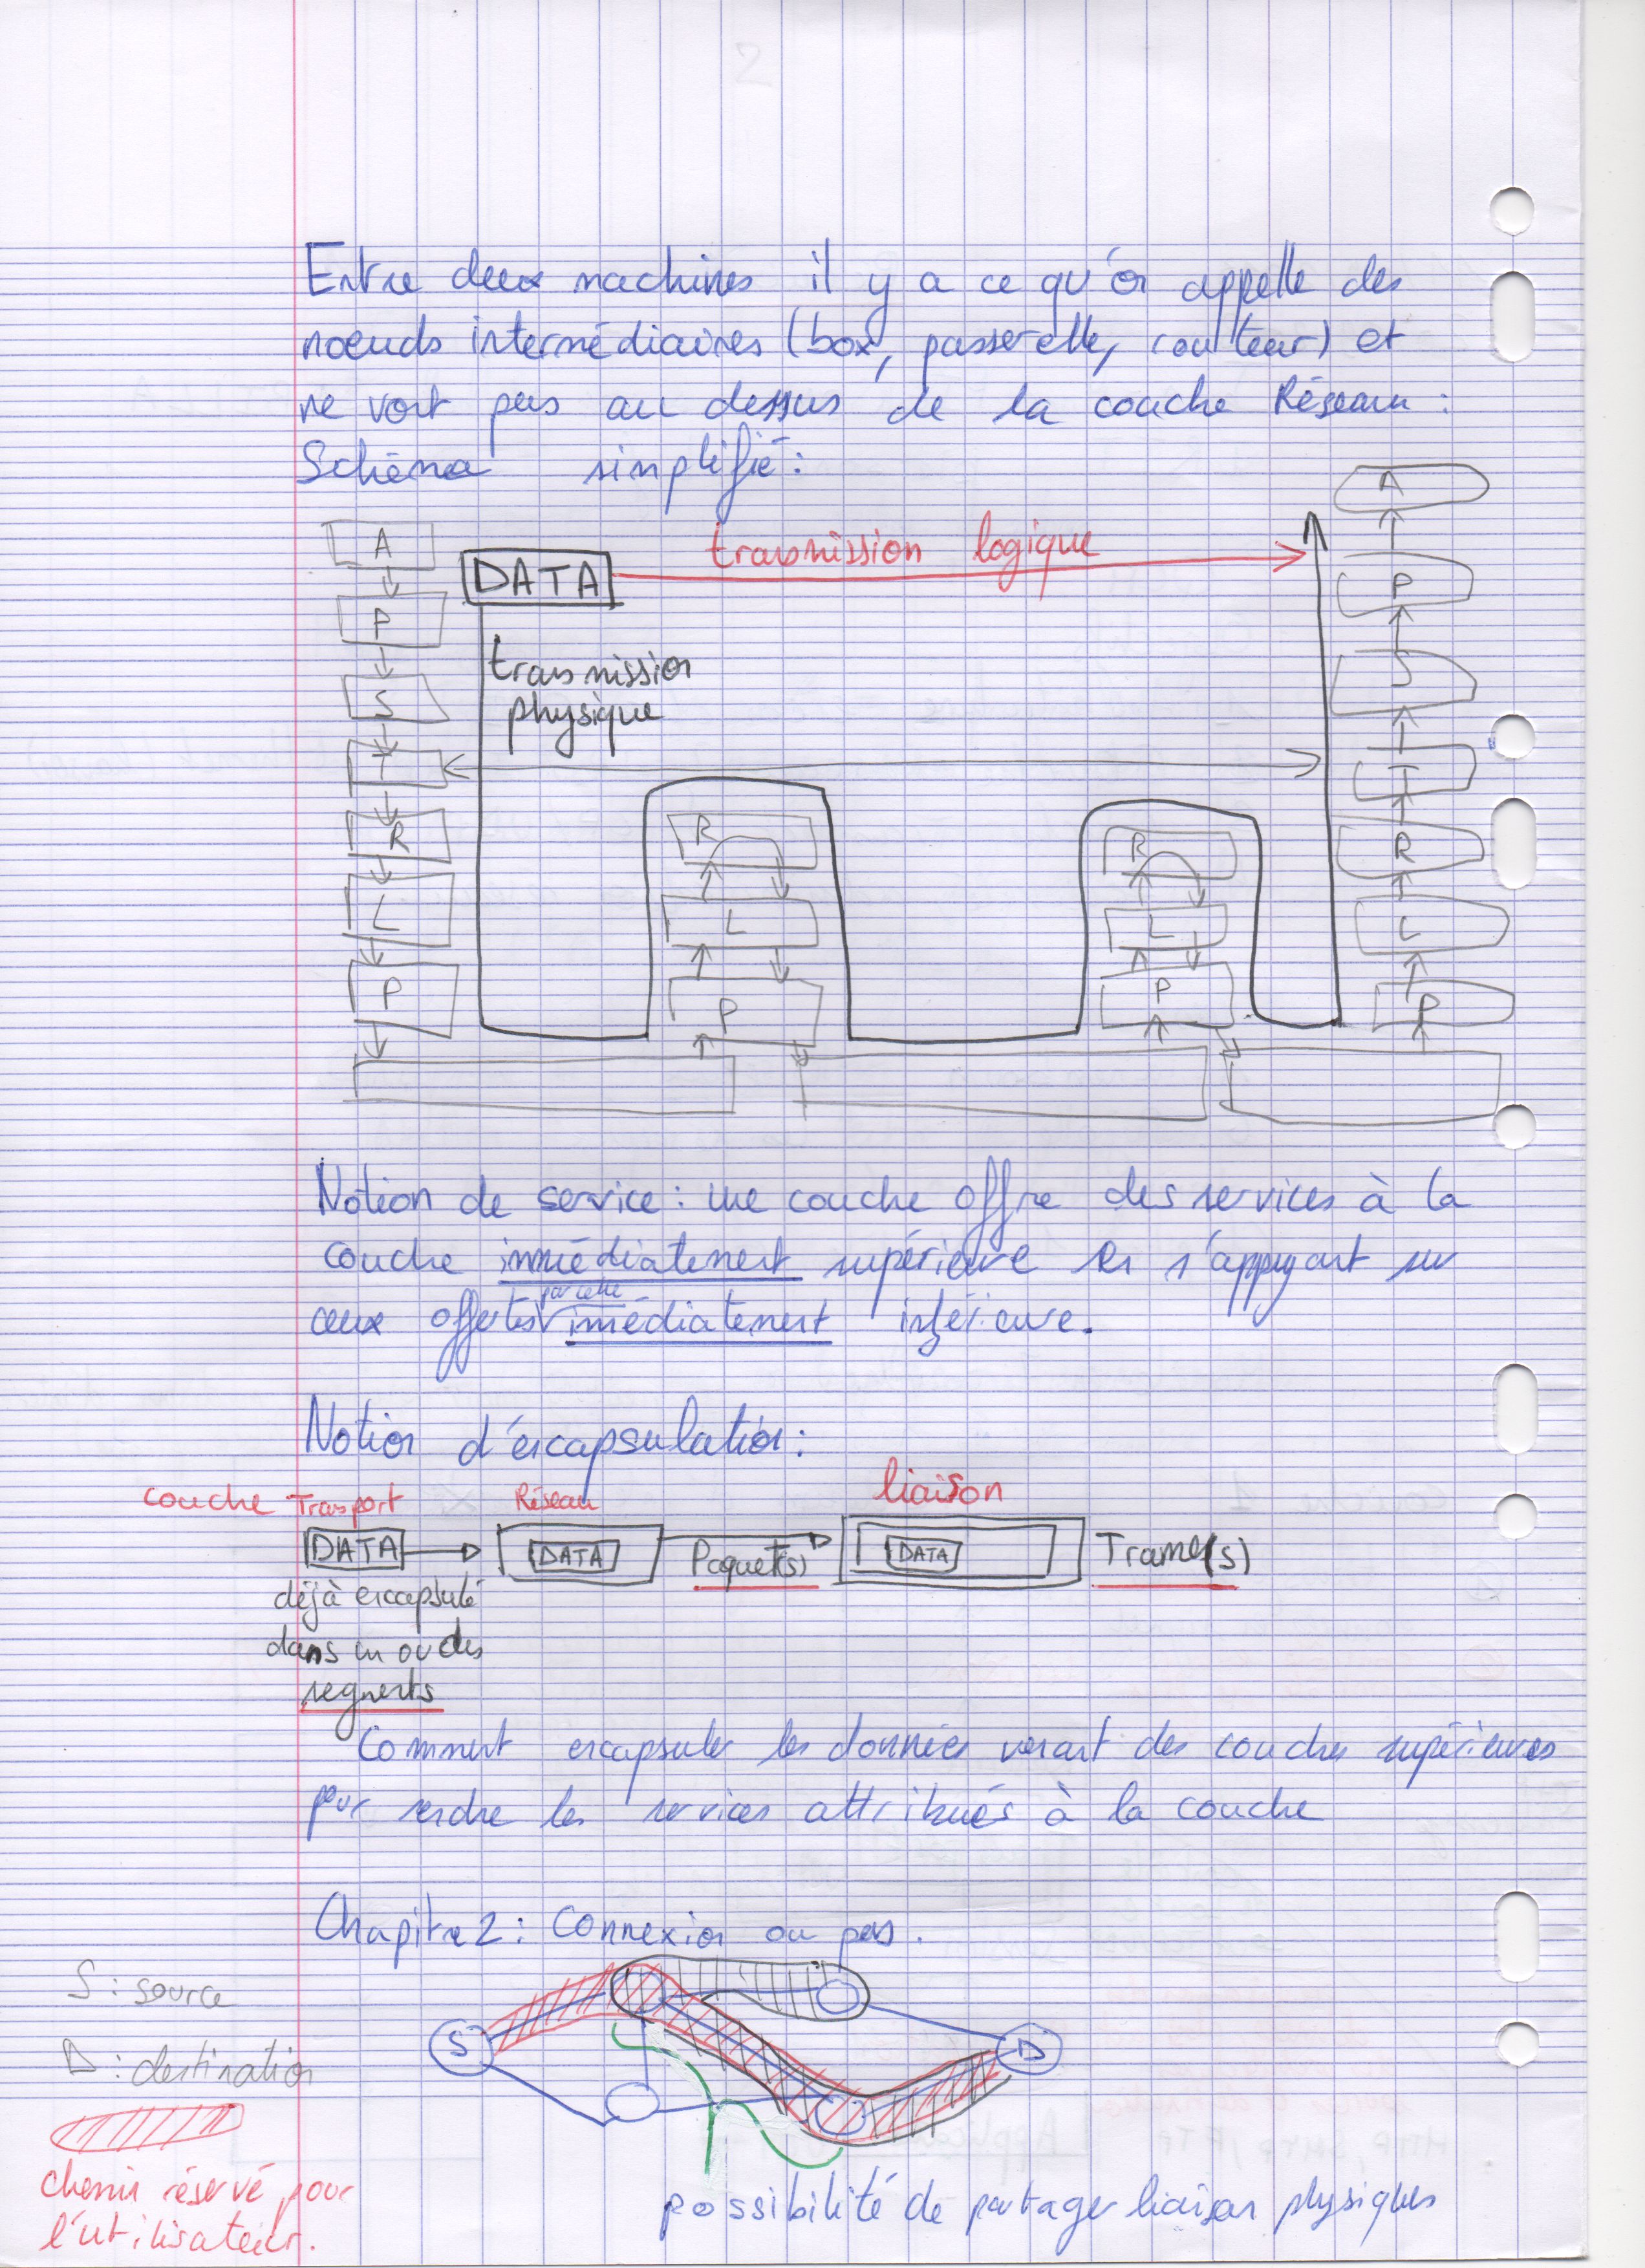 Entre deux machines il y a ce qu'on appelle des
noeuds intermédiaires (box, passerelle, routeur) et
ne vont pas au dessus de la couche Réseau :
Schéma simplifié :
A
P
S
T
R
L
P
DATA
transmission logique
transmission
physique
R
L
P
R
L
P
A
P
S
T
R
L
P
Notion de service : une couche offre des services à la
couche immédiatement supérieure en s'appuyant sur
ceux offertes par celle imédiatement inférieure.
Notion d'encapsulation :
couche Transport Réseau liaison
DATA DATA Paquet(s) DATA Trame(s)
déjà encapsulé
dans un ou des
segments
Comment encapsuler les données venant des couches supérieures
pour rendre les services attribués à la couche
Chapitre 2 : Connexion ou pas.
S : source
D : destination
S
D
chemin réservé pour
l'utilisateur.
possibilité de partager liaison physiques